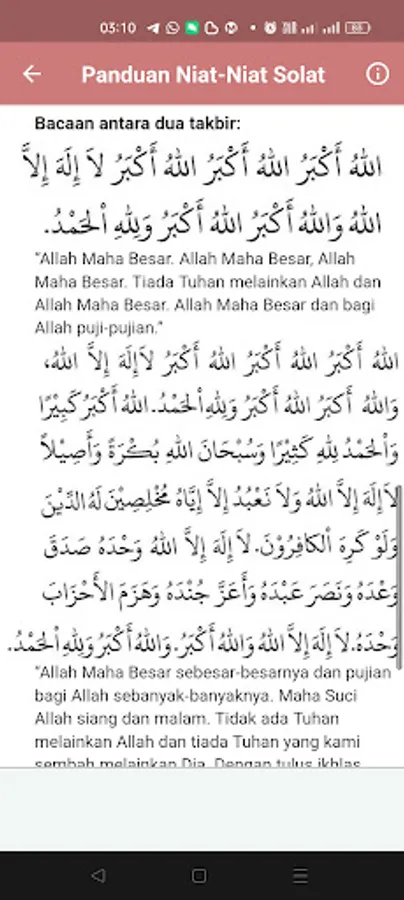 03:10
Panduan Niat-Niat Solat
Bacaan antara dua takbir:
اللهُ أَكْبَرُ اللهُ أَكْبَرُ اللهُ أَكْبَرُ لاَ إِلَهَ إِلاَّ
اللهُ وَاللهُ أَكْبَرُ اللهُ أَكْبَرُ وَلِلّٰهِ اْلحَمْدُ.
"Allah Maha Besar. Allah Maha Besar, Allah
Maha Besar. Tiada Tuhan melainkan Allah dan
Allah Maha Besar. Allah Maha Besar dan bagi
Allah puji-pujian."
اللهُ أَكْبَرُ اللهُ أَكْبَرُ اللهُ أَكْبَرُ لاَإِلَهَ إِلاَّ اللهُ،
وَاللهُ أَكبَرُ اللهُ أَكْبَرُ وَلِلّٰهِ اْلحَمْدُ. اللهُ أَكْبَرُ كَبِيْرًا
وَاْلحَمْدُ لِلّٰهِ كَثِيْرًا وَسُبْحَانَ اللهِ بُكْرَةً وَأَصِيْلاً
لاَإِلَهَ إِلاَّ اللهُ وَلاَ نَعْبُدُ إِلاَّ إِيَّاهُ مُخْلِصِيْنَ لَهُ الدَّيْنَ
وَلَوْ كَرِهَ اْلكَافِرُوْنَ. لاَ إِلَهَ إِلاَّ اللهُ وَحْدَهُ صَدَقَ
وَعْدَهُ وَنَصَرَ عَبْدَهُ وَأَعَزَّ جُنْدَهُ وَهَزَمَ الأَحْزَابَ
وَحْدَهُ. لاَ إِلَهَ إِلاَّ اللهُ وَاللهُ أَكْبَرُ. وَاللهُ أَكْبَرُ وَلِلّٰهِ اْلحَمْدُ.
"Allah Maha Besar sebesar-besarnya dan pujian
bagi Allah sebanyak-banyaknya. Maha Suci
Allah siang dan malam. Tidak ada Tuhan
melainkan Allah dan tiada Tuhan yang kami
sembah melainkan Dia. Dengan tulus ikhlas